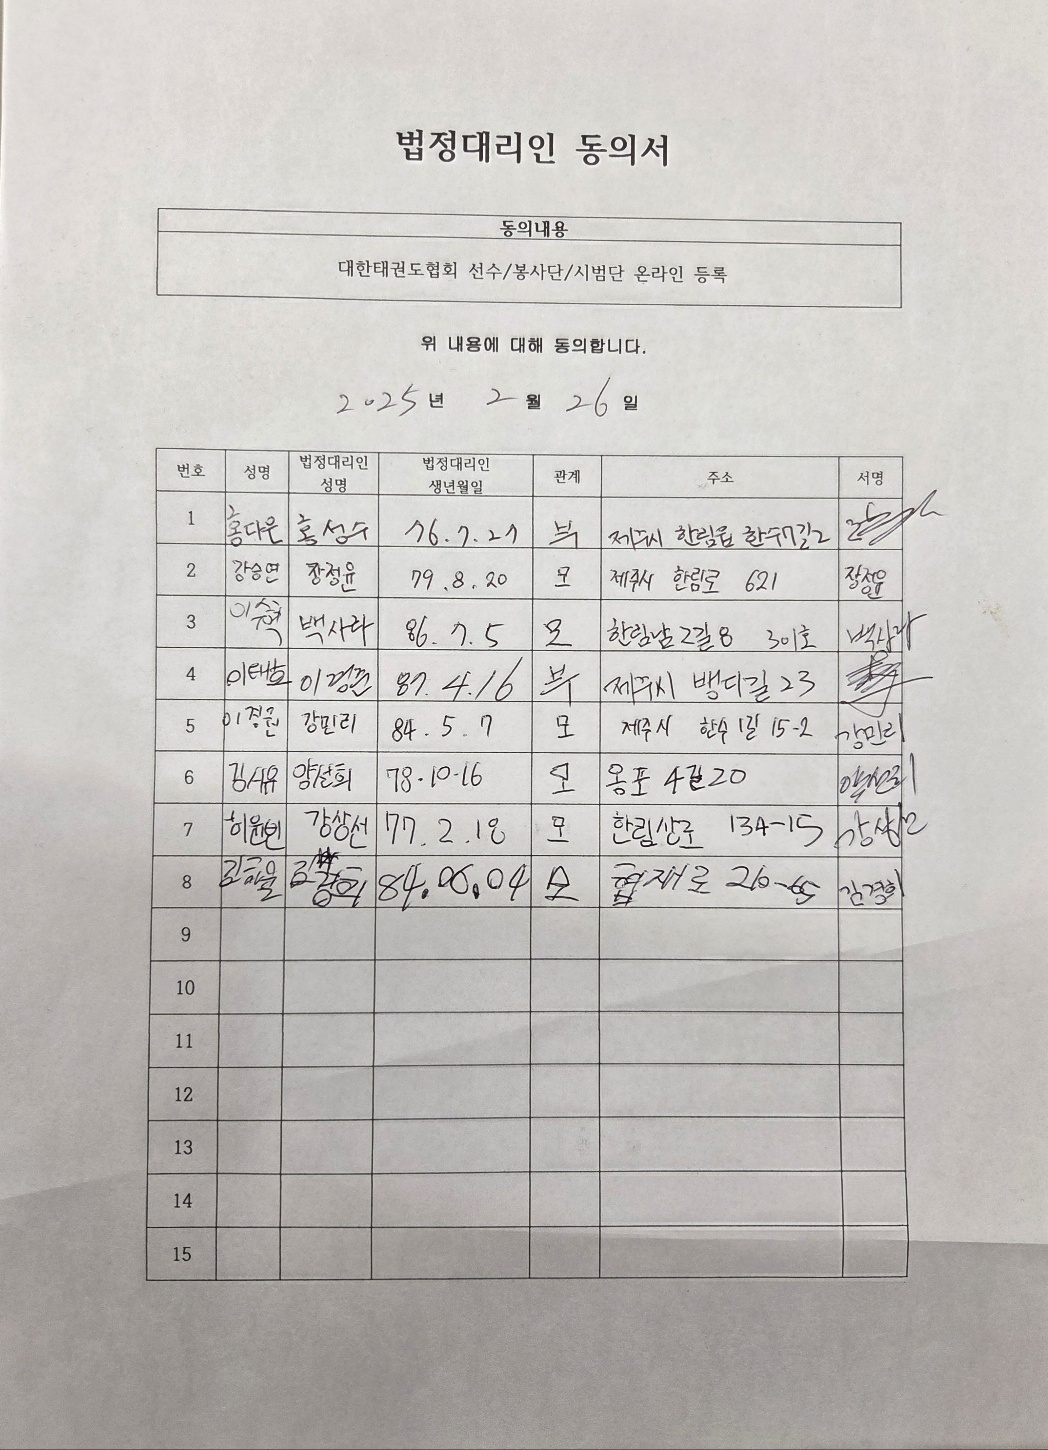 법정대리인 동의서
동의내용
대한태권도협회 선수/봉사단/시범단 온라인 등록
위 내용에 대해 동의합니다.
2025년 2월 26일
번호 성명 법정대리인 성명 법정대리인 생년월일 관계 주소 서명
1 홍다은 홍성수 76.7.27 부 제주시 한림읍 한수7길2
2 강승연 장정윤 79.8.20 모 제주시 한림로 621 장정윤
3 이수혁 백사라 86.7.5 모 한림남2길8 301호 백사라
4 이태호 이경준 87.4.16 부 제주시 뱅디길 23
5 강민리 84.5.7 모 제주시 한수1길 15-2 강민리
6 김시유 양선희 78.10.16 모 옹포4길20 양선희
7 허원빈 강상선 77.2.18 모 한림상로 134-15
8 84.06.04 모 협재로 210-65 김경희
9
10
11
12
13
14
15